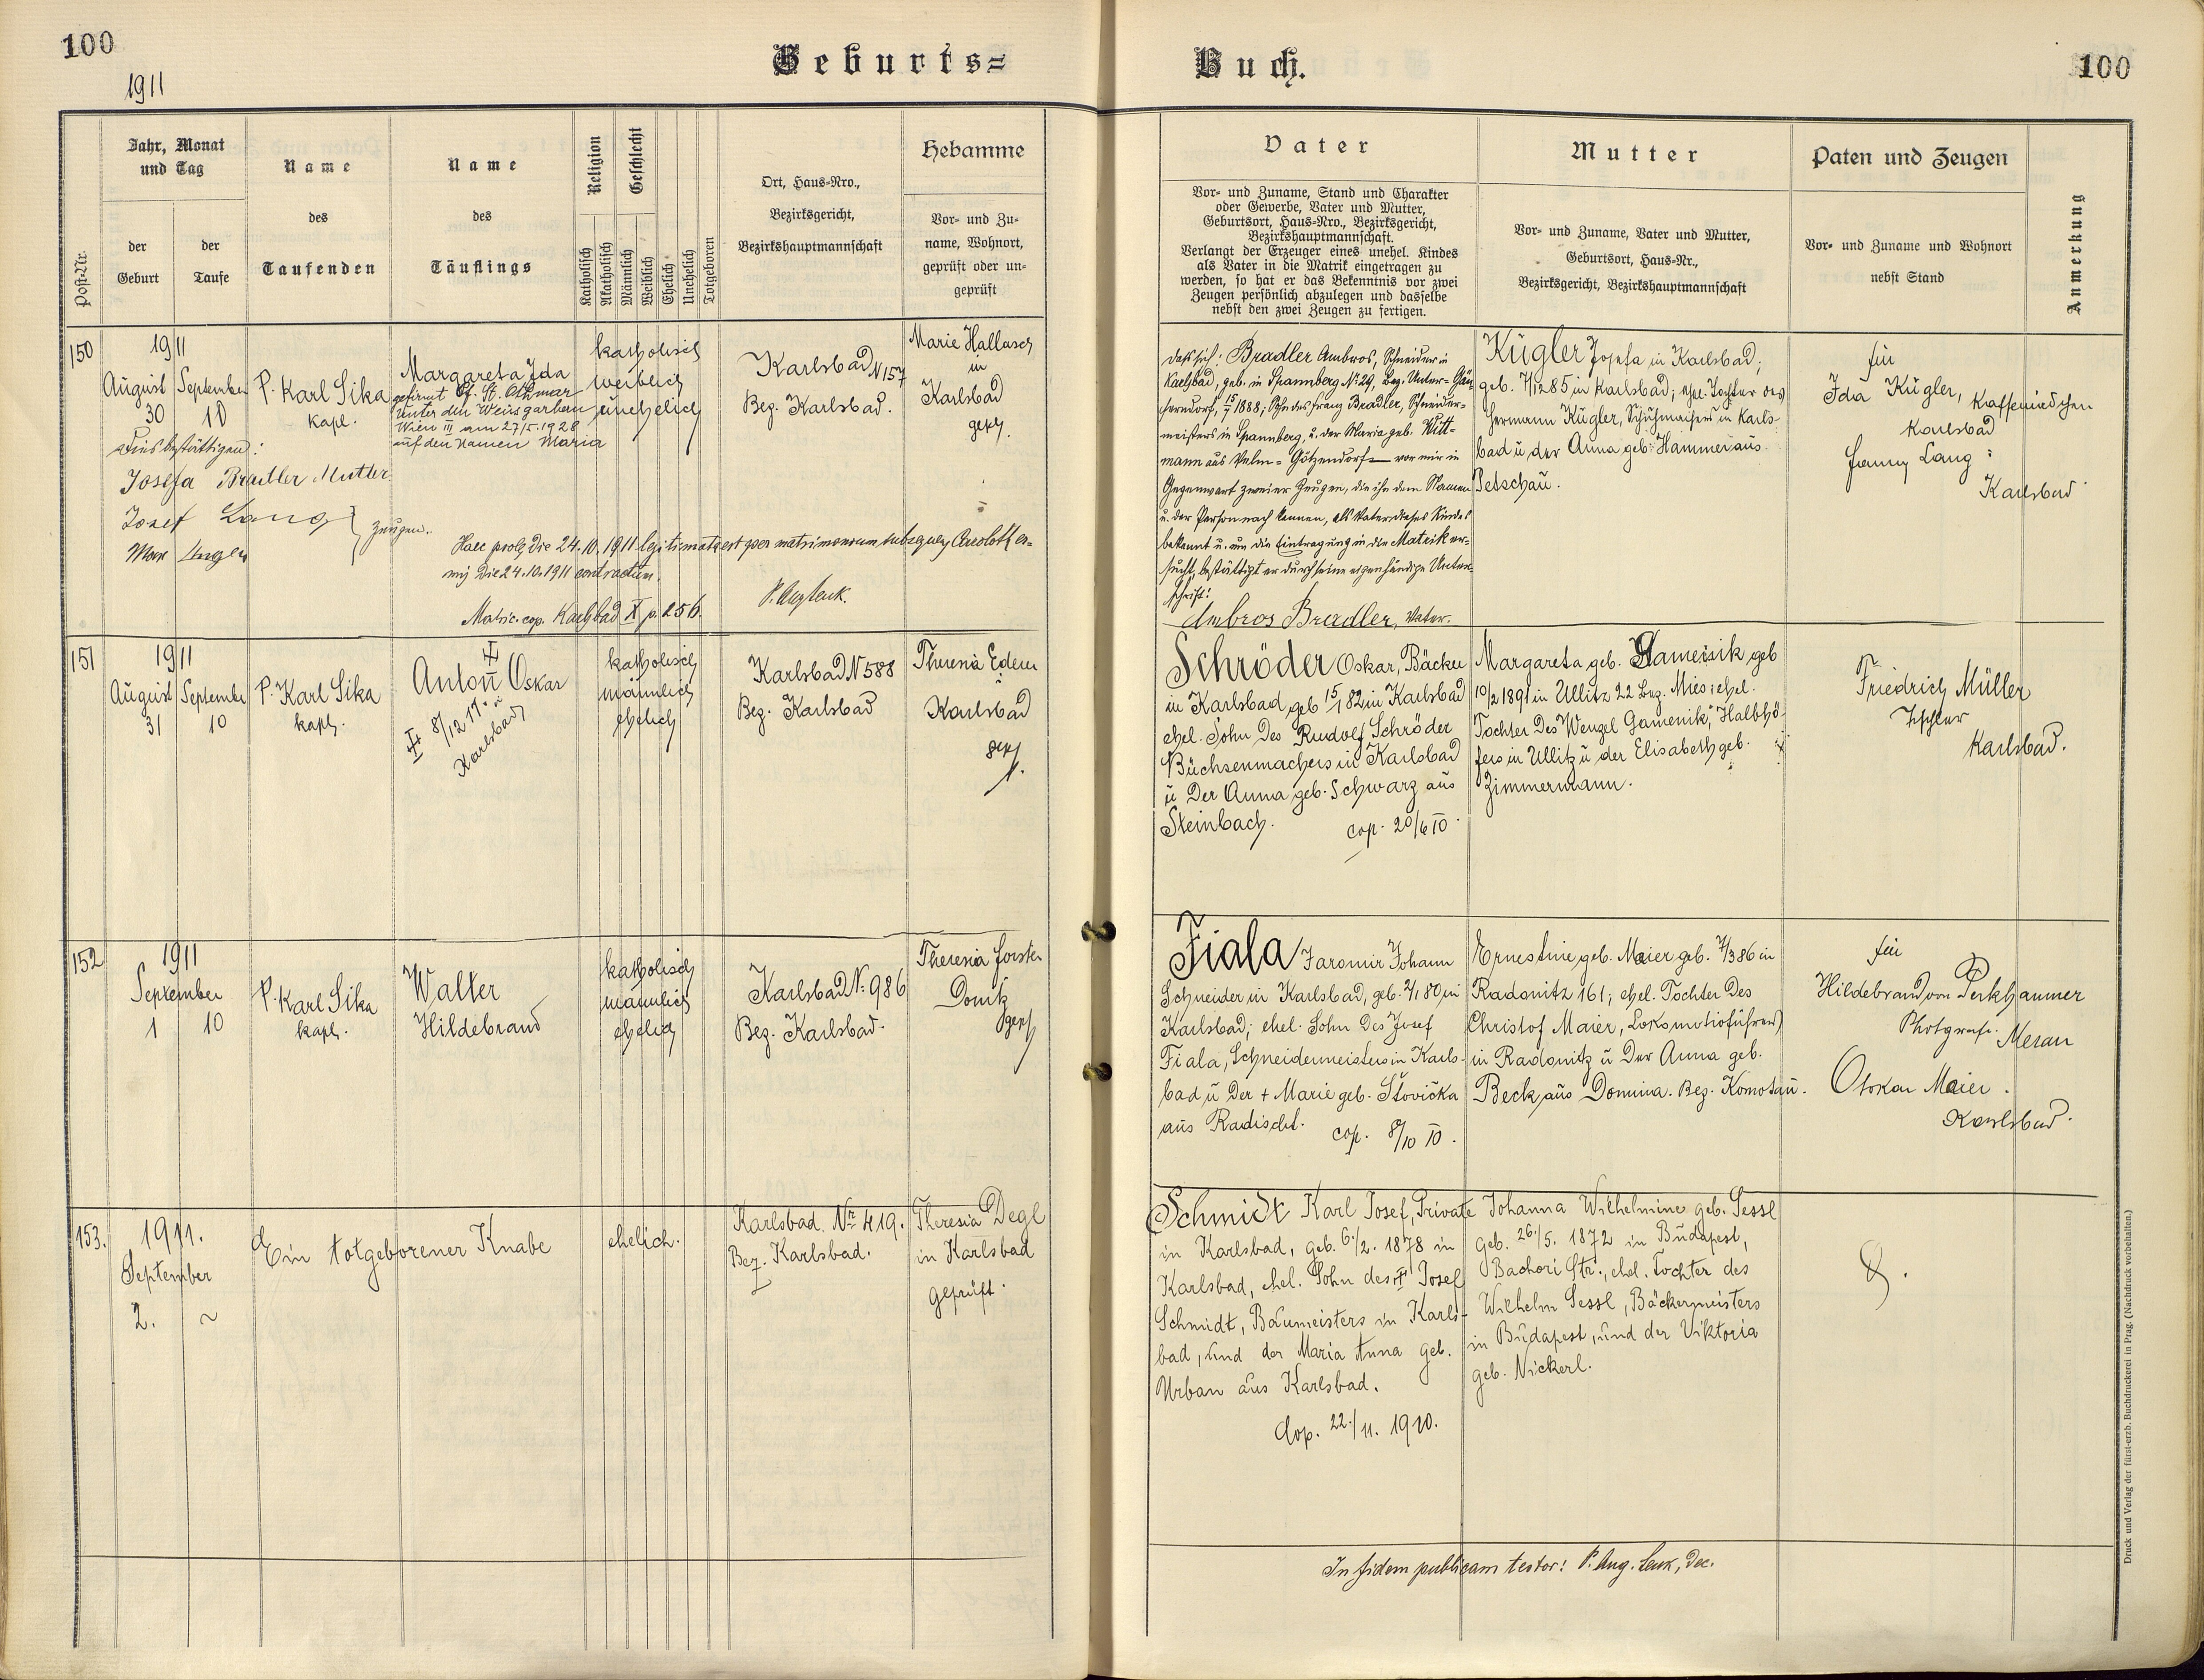 100
1911
Geburts=
Buch.
100
Post-Nr.
Jahr, Monat
und Tag
der
Geburt
der
Taufe
Name
des
Taufenden
Name
des
Täuflings
Religion
Geschlecht
Katholisch
Akatholisch
Männlich
Weiblich
Ehelich
Unehelich
Totgeboren
Ort, Haus-Nro.,
Bezirksgericht,
Bezirkshauptmannschaft
Hebamme
Vor- und Zu-
name, Wohnort,
geprüft oder un-
geprüft
Vater
Vor- und Zuname, Stand und Charakter
oder Gewerbe, Vater und Mutter,
Geburtsort, Haus-Nro., Bezirksgericht,
Bezirkshauptmannschaft.
Verlangt der Erzeuger eines unehel. Kindes
als Vater in die Matrik eingetragen zu
werden, so hat er das Bekenntnis vor zwei
Zeugen persönlich abzulegen und dasselbe
nebst den zwei Zeugen zu fertigen.
Mutter
Vor- und Zuname, Vater und Mutter,
Geburtsort, Haus-Nr.,
Bezirksgericht, Bezirkshauptmannschaft
Paten und Zeugen
Vor- und Zuname und Wohnort
nebst Stand
Anmerkung
150
1911
August
30
September
10
P. Karl Sika
kapl.
Margareta Ida
gefirmt Pf. St. Othmar
unter den Weisgarbern
Wien III am 27/5.1928
auf den Namen Maria
katholisch
weiblich
unehelich
Karlsbad N 157
Bez. Karlsbad.
Marie Hallusch
in
Karlsbad
gepr.
Dies bestättigen:
Josefa Bradler Mutter
Josef Lang
Zeugen.
Haec proles die 24.10.1911 legitimata est per matrimonium subsequens Carolothermis
die 24.10.1911 contractum.
Matric. cop. Karlsbad X p. 256.
Dass sich: Bradler Ambros, Schneider in
Karlsbad, geb. in Spannberg No 29, Bez. Unter-Gän-
serndorf, 15/ 1888; Sohn des Franz Bradler, Schneider-
meisters in Spannberg, u. der Maria geb. Witt-
mann aus Velm-Götzendorf — vor mir in
Gegenwart zweier Zeugen, die ihn dem Namen
u. der Person nach kennen, als Vater dieses Kindes
bekannt u. um die Eintragung in die Matrik er-
sucht, bestättigt er durch seine eigenhändige Unter-
schrift:
Ambros Bradler, Vater.
Kugler Josefa in Karlsbad;
geb. 7/12 85 in Karlsbad; ehel. Tochter des
Hermann Kugler, Schuhmachers in Karls-
bad u der Anna geb. Hammer aus
Petschau.
für
Ida Kugler, Kaffeemädchen
Karlsbad
Fanny Lang
Karlsbad
151
1911
August
31
September
10
P. Karl Sika
kapl.
Anton Oskar
8/12 11 in
Karlsbad
katholisch
männlich
ehelich
Karlsbad N 588
Bez. Karlsbad
Theresia Ederer
Karlsbad
gepr.
Schröder Oskar, Bäcker
in Karlsbad geb 15/1 82 in Karlsbad
ehel. Sohn des Rudolf Schröder
Büchsenmachers in Karlsbad
u der Anna geb. Schwarz aus
Steinbach.
cop. 20/6 10.
Margareta geb. geb
10/2 1891 in Ullitz 22 Bez. Mies; ehel.
Tochter des Wenzel Gamenik, Halbhö-
fers in Ullitz u der Elisabeth geb.
Zimmermann.
Friedrich Müller
Tischler
Karlsbad.
152
1911
September
1
10
P. Karl Sika
kapl.
Walter
Hildebrand
katholisch
männlich
ehelich
Karlsbad N. 986
Bez. Karlsbad.
Theresia Forster
Donitz
gepr
Fiala Jaromir Johann
Schneider in Karlsbad, geb. 2/1 80 in
Karlsbad; ehel. Sohn des Josef
Fiala, Schneidermeisters in Karls-
bad u der + Marie geb. Šťovička
aus Radischt.
cop. 8/10 10.
Ernestine geb. Maier geb. 7/3 86 in
Radonitz 161; ehel. Tochter des
Christof Maier, Lokomotivführers
in Radonitz u der Anna geb.
Beck aus Domina. Bez. Komotau.
für
Hildebrand von Perkhammer
Photgraf. Meran
Otokar Maier.
Karlsbad.
153.
1911.
September
2.
~
Ein totgeborener Knabe
ehelich.
Karlsbad Nr. 419.
Bez. Karlsbad.
Theresia Degl
in Karlsbad
geprüft.
Schmidt Karl Josef, Private
in Karlsbad, geb. 6./2. 1878 in
Karlsbad, ehel. Sohn des Josef
Schmidt, Baumeisters in Karls-
bad, und der Maria Anna geb.
Urban aus Karlsbad.
Cop. 22./11. 1910.
Johanna Wilhelmine geb. Sessl
geb. 26./5. 1872 in Budapest,
Bachori Str., ehel. Tochter des
Wilhelm Sessl, Bäckermeisters
in Budapest, und der Viktoria
geb. Nickerl.
In fidem publicam testor: P. Aug. Lenk, Dec.
Druck und Verlag der fürst-erzb. Buchdruckerei in Prag. (Nachdruck vorbehalten.)